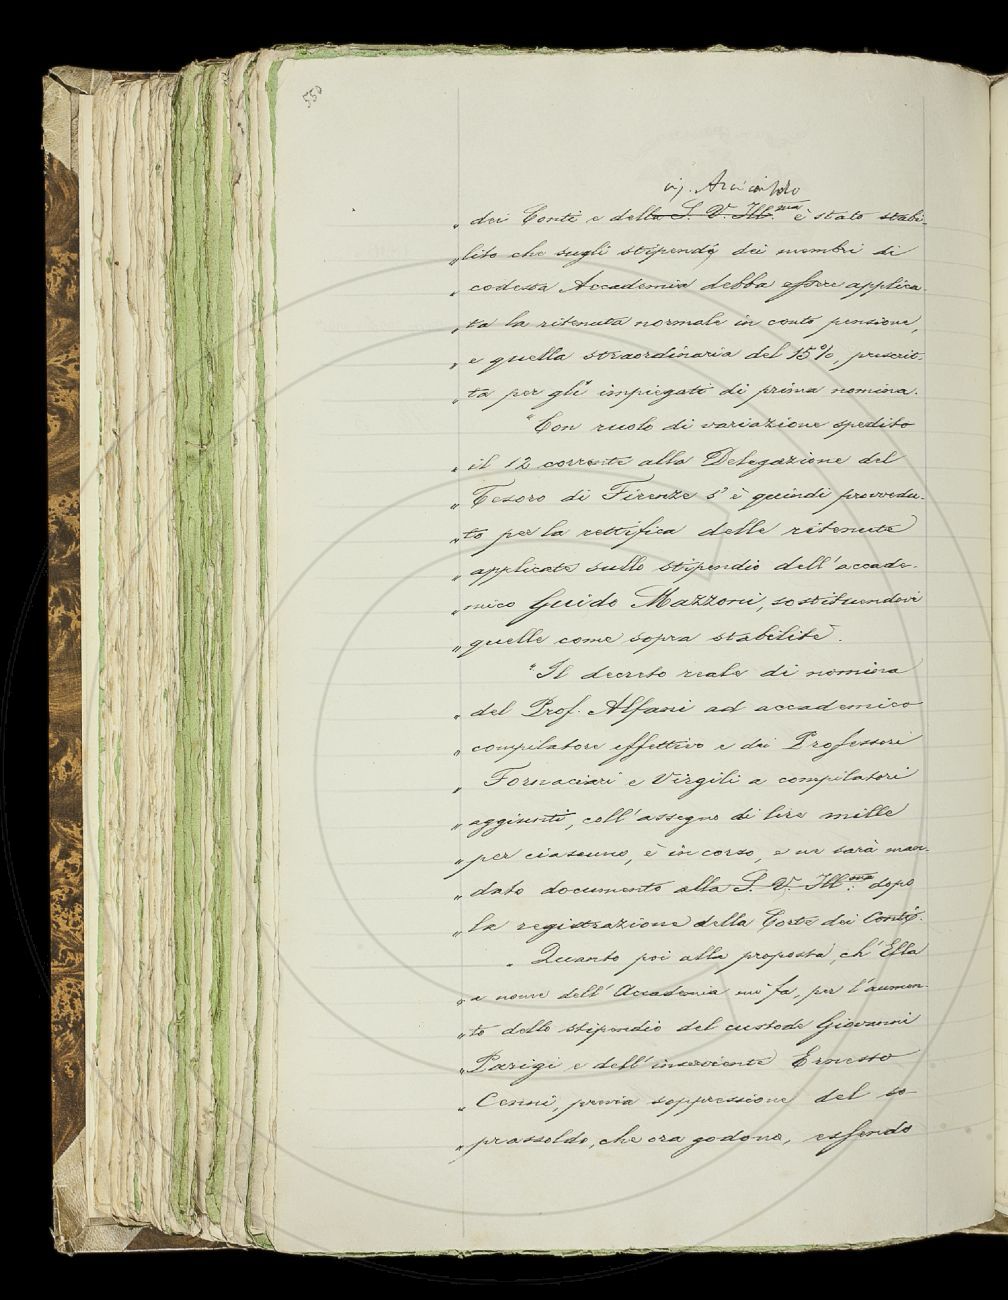 550
sig. Arciconsolo
„ dei Conti e della S. V. Ill.ma è stato stabi-
„ lito che sugli stipendi dei membri di
„ codesta Accademia debba essere applica-
„ ta la ritenuta normale in conto pensione,
„ e quella straordinaria del 15%, prescrit-
„ ta per gli impiegati di prima nomina.
" Con ruolo di variazione spedito
„ il 12 corrente alla Delegazione del
„ Tesoro di Firenze s'è quindi provvedu-
„ to per la rettifica delle ritenute
„ applicate sullo stipendio dell'accade-
„ mico Guido Mazzoni, sostituendovi
„ quelle come sopra stabilite.
" Il decreto reale di nomina
„ del Prof. Alfani ad accademico
„ compilatore effettivo e dei Professori
„ Fornaciari e Virgili a compilatori
„ aggiunti, coll'assegno di lire mille
„ per ciascuno, è in corso, e ne sarà man-
„ dato documento alla S. V. Ill.ma dopo
„ la registrazione della Corte dei Conti.
" Quanto poi alla proposta, ch'Ella
„ a nome dell'Accademia mi fa, per l'aumen-
„ to dello stipendio del custode Giovanni
„ Parigi e dell'inserviente Ernesto
„ Cenni, previa soppressione del so-
„ prassoldo, che ora godono, essendo